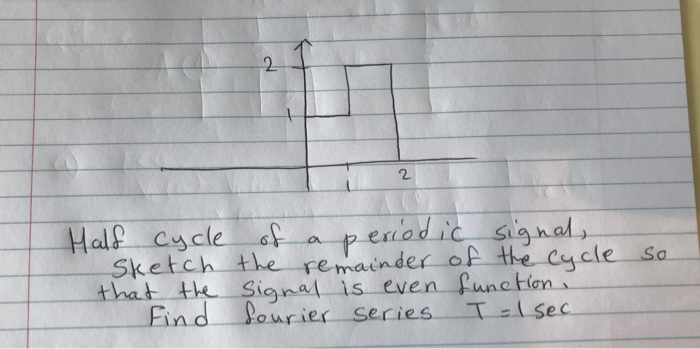 2
1
1
2
Half cycle of a periodic signal,
Sketch the remainder of the cycle so
that the signal is even function.
Find fourier series T=1 sec